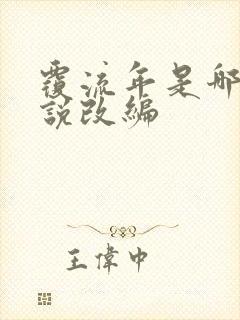 覆流年是那
說改編
王偉中